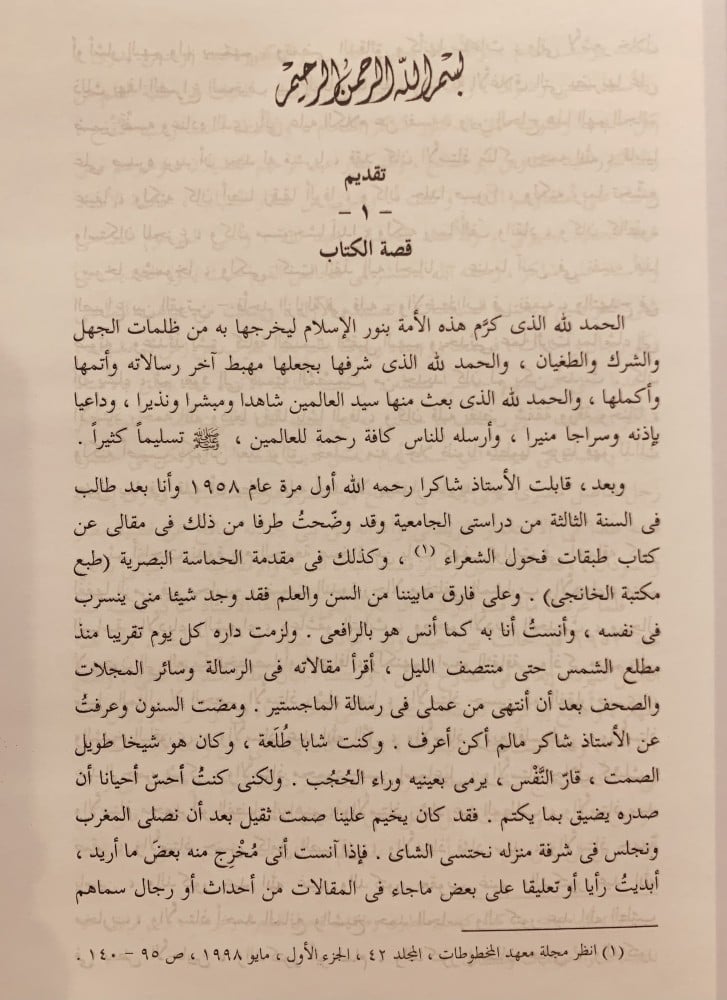 بسم الله الرحمن الرحيم
تقديم
- ١ -
قصة الكتاب
الحمد لله الذى كرَّم هذه الأمة بنور الإسلام ليخرجها به من ظلمات الجهل
والشرك والطغيان ، والحمد لله الذى شرفها بجعلها مهبط آخر رسالاته وأتمها
وأكملها ، والحمد لله الذى بعث منها سيد العالمين شاهدا ومبشرا ونذيرا ، وداعيا
بإذنه وسراجا منيرا ، وأرسله للناس كافة رحمة للعالمين ، ﷺ تسليماً كثيراً .
وبعد ، قابلت الأستاذ شاكرا رحمه الله أول مرة عام ١٩٥٨ وأنا بعد طالب
فى السنة الثالثة من دراستى الجامعية وقد وضّحتُ طرفا من ذلك فى مقالى عن
كتاب طبقات فحول الشعراء (١) ، وكذلك فى مقدمة الحماسة البصرية (طبع
مكتبة الخانجى) . وعلى فارق مابيننا من السن والعلم فقد وجد شيئا منى ينسرب
فى نفسه ، وأنستُ أنا به كما أنس هو بالرافعى . ولزمت داره كل يوم تقريبا منذ
مطلع الشمس حتى منتصف الليل ، أقرأ مقالاته فى الرسالة وسائر المجلات
والصحف بعد أن أنتهى من عملى فى رسالة الماجستير . ومضت السنون وعرفتُ
عن الأستاذ شاكر مالم أكن أعرف . وكنت شابا طُلَعة ، وكان هو شيخا طويل
الصمت ، قارّ النَّفْس ، يرمى بعينيه وراء الحُجُب . ولكنى كنتُ أحسّ أحيانا أن
صدره يضيق بما يكتم . فقد كان يخيم علينا صمت ثقيل بعد أن نصلى المغرب
ونجلس فى شرفة منزله نحتسى الشاى . فإذا آنست أنى مُخْرِج منه بعضَ ما أريد ،
أبديتُ رأيا أو تعليقا على بعض ماجاء فى المقالات من أحداث أو رجال سماهم
(١) انظر مجلة معهد المخطوطات ، المجلد ٤٢ ، الجزء الأول ، مايو ١٩٩٨ ، ص ٩٥ - ١٤٠ .